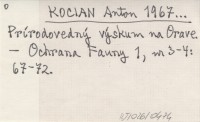 KOCIAN Anton 1967...
Prírodovedný výskum na Orave.
— Ochrana Fauny 1, nr 3-4:
67-72.